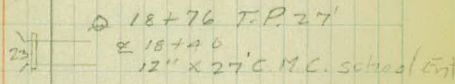 18+76 T.P. 27'
18+40
23
12" x 27' C.M.C. School Ent